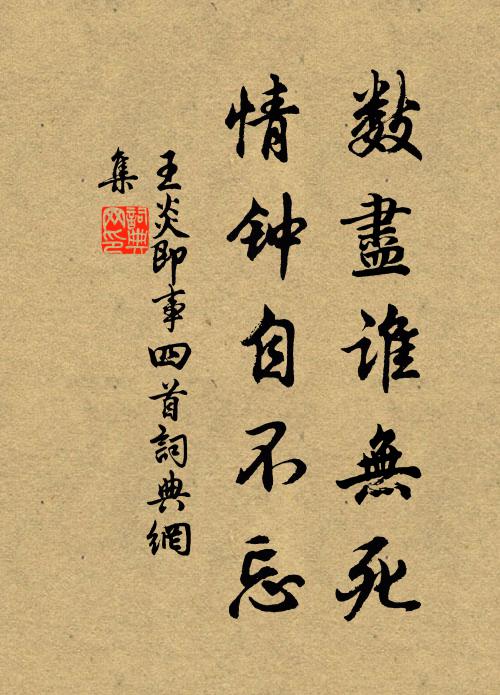 数盡谁無死
情钟自不忘
王炎即事四首詞典網
集
詞典
网印